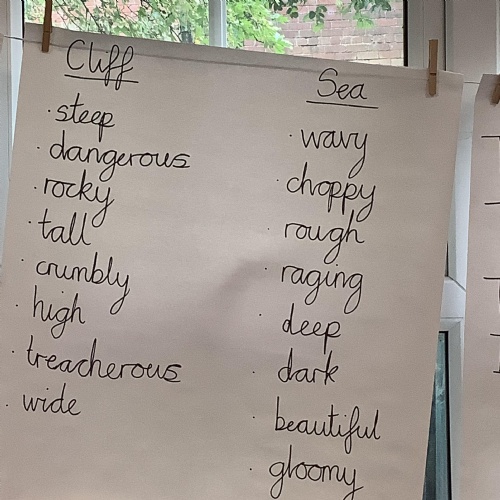 Cliff
· steep
· dangerous
· rocky
· tall
· crumbly
· high
· treacherous
· wide
Sea
· wavy
· choppy
· rough
· raging
· deep
· dark
· beautiful
· gloomy